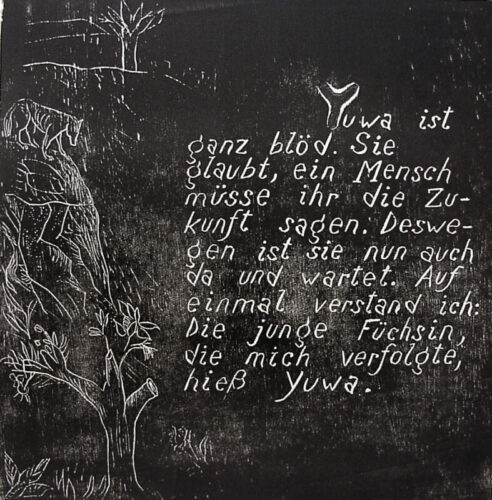 Yuwa ist
ganz blöd. Sie
glaubt, ein Mensch
müsse ihr die Zu-
kunft sagen. Deswe-
gen ist sie nun auch
da und wartet. Auf
einmal verstand ich:
Die junge Füchsin,
die mich verfolgte,
hieß Yuwa.